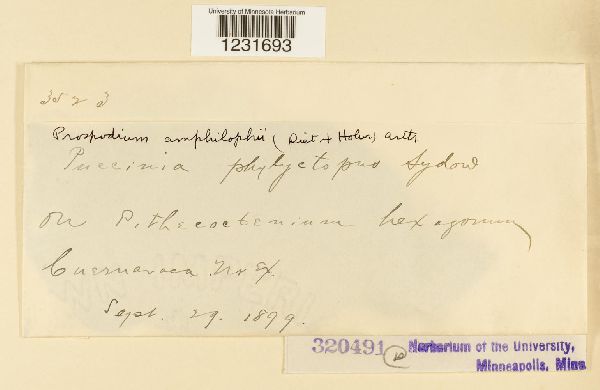 University of Minnesota Herbarium
1231693
3523
Prospodium amphilophii (Diet + Holw) Arth
Puccinia phlyctopus Sydow
on Pithecoctenium hexagonum
Cuernavaca Mex.
Sept. 29. 1899.
320491 Herbarium of the University,
Minneapolis, Minn